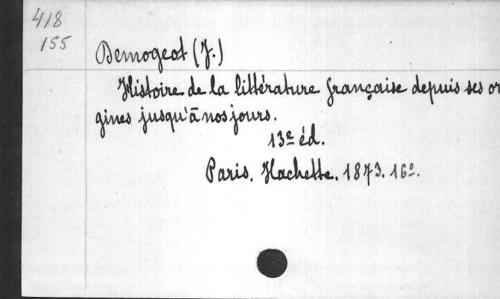 418
155
Demogeot (J.)
Histoire de la littérature française depuis ses ori
gines jusqu'à nos jours.
13e éd.
Paris. Hachette. 1873. 16o.